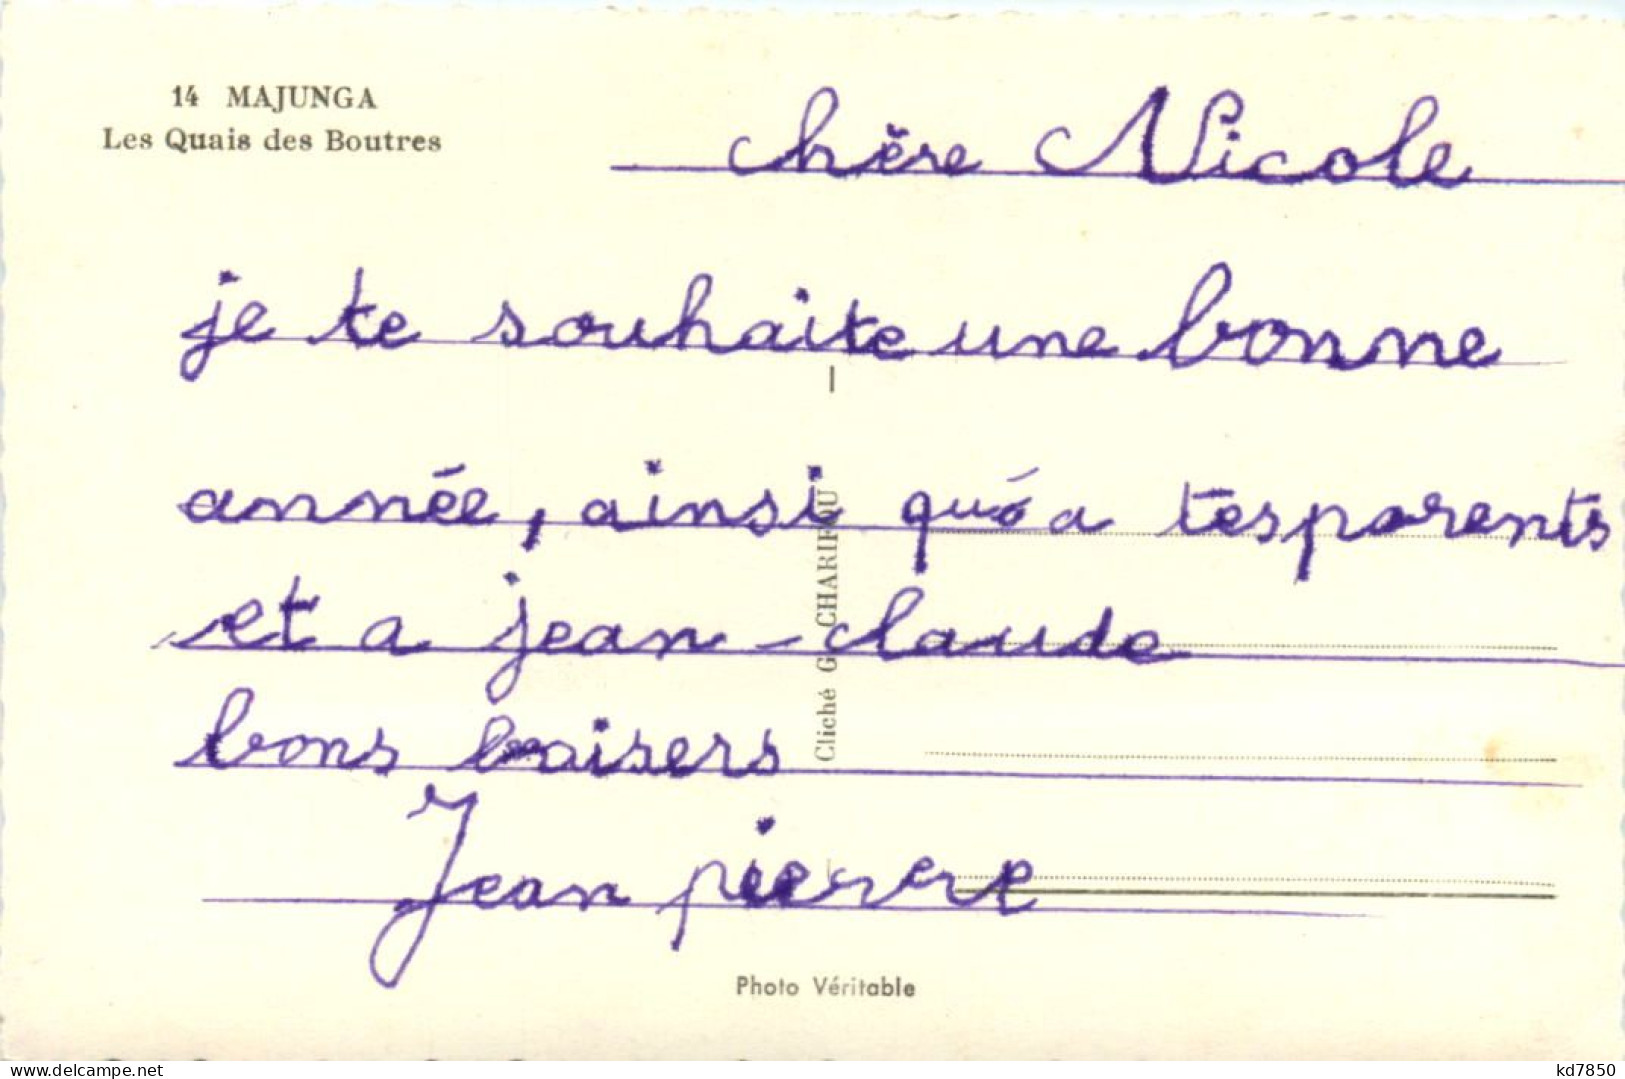 14 MAJUNGA
Les Quais des Boutres
chère Nicole
je te souhaite une bonne
année, ainsi qu'a tes parents
et a jean-claude
bons baisers
Jean pierre
Cliché G. CHARIFOU
Photo Véritable
www.delcampe.net
kd7850